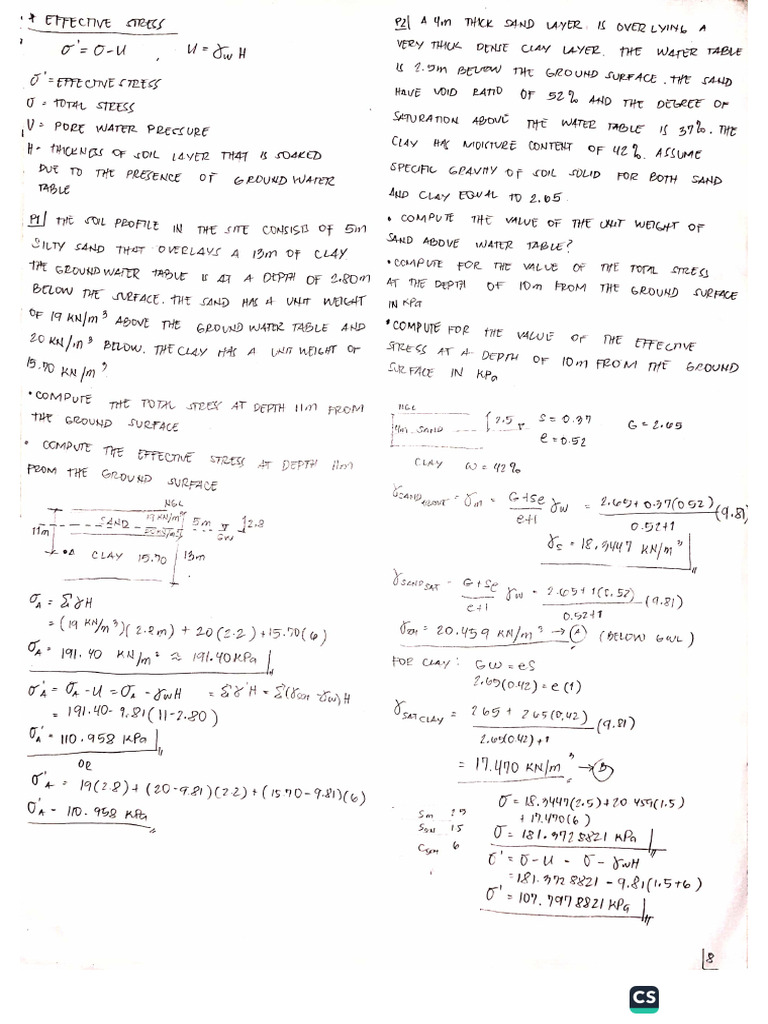 * EFFECTIVE STRESS
σ' = σ-U , U = γw H
σ' = EFFECTIVE STRESS
σ = TOTAL STRESS
U = PORE WATER PRESSURE
H = THICKNESS OF SOIL LAYER THAT IS SOAKED
DUE TO THE PRESENCE OF GROUND WATER
TABLE
P1| THE SOIL PROFILE IN THE SITE CONSISTS OF 5m
SILTY SAND THAT OVERLAYS A 13m OF CLAY
THE GROUNDWATER TABLE IS AT A DEPTH OF 2.80m
BELOW THE SURFACE. THE SAND HAS A UNIT WEIGHT
OF 19 KN/m³ ABOVE THE GROUNDWATER TABLE AND
20 KN/m³ BELOW. THE CLAY HAS A UNIT WEIGHT OF
15.70 KN/m³.
• COMPUTE THE TOTAL STRESS AT DEPTH 11m FROM
THE GROUND SURFACE
• COMPUTE THE EFFECTIVE STRESS AT DEPTH 11m
FROM THE GROUND SURFACE
NGL
SAND 19 KN/m³ 5m GW 2.8
11m
•A CLAY 15.70 13m
σA = Σ γH
= (19 KN/m³)(2.8m) + 20(2.2) + 15.70(6)
σA = 191.40 KN/m² ≈ 191.40 KPa
σ'A = σA - U = σA - γwH = Σγ'H = Σ(γsat - γw)H
= 191.40 - 9.81(11-2.80)
σA' = 110.958 KPa
OR
σ'A = 19(2.8) + (20-9.81)(2.2) + (15.70-9.81)(6)
σ'A = 110.958 KPa
P2| A 4m THICK SAND LAYER IS OVERLYING A
VERY THICK DENSE CLAY LAYER. THE WATER TABLE
IS 2.5m BELOW THE GROUND SURFACE. THE SAND
HAVE VOID RATIO OF 52% AND THE DEGREE OF
SATURATION ABOVE THE WATER TABLE IS 37%. THE
CLAY HAS MOISTURE CONTENT OF 42%. ASSUME
SPECIFIC GRAVITY OF SOIL SOLID FOR BOTH SAND
AND CLAY EQUAL TO 2.65.
• COMPUTE THE VALUE OF THE UNIT WEIGHT OF
SAND ABOVE WATER TABLE?
• COMPUTE FOR THE VALUE OF THE TOTAL STRESS
AT THE DEPTH OF 10m FROM THE GROUND SURFACE
IN KPa
• COMPUTE FOR THE VALUE OF THE EFFECTIVE
STRESS AT A DEPTH OF 10m FROM THE GROUND
SURFACE IN KPa
NGL
4m SAND 2.5 S = 0.37 G = 2.65
e = 0.52
CLAY ω = 42%
γSAND ABOVE = γm = G+Se/e+1 γw = 2.65+0.37(0.52)/0.52+1 (9.81)
γs = 18.3447 KN/m³
γSAND SAT = G+Se/e+1 γw = 2.65+1(0.52)/0.52+1 (9.81)
γsat = 20.459 KN/m³ → A (BELOW GWL)
FOR CLAY: Gω = eS
2.65(0.42) = e(1)
γSAT CLAY = 2.65 + 2.65(0.42)/2.65(0.42)+1 (9.81)
= 17.470 KN/m³ → B
σ = 18.3447(2.5)+20.459(1.5)
+ 17.470(6)
σ = 181.3728821 KPa
σ' = σ - U = σ - γwH
= 181.3728821 - 9.81(1.5+6)
σ' = 107.7978821 KPa
8
CS